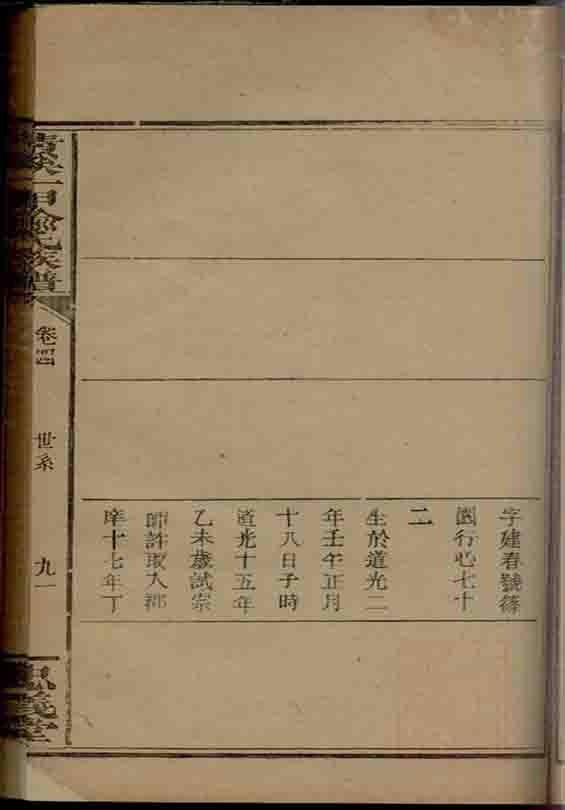 字建春號篠
園行心七十
二
生於道光二
年壬午正月
十八日子時
道光十五年
乙未歲試宗
師許取入郡
庠十七年丁
一甲俞氏族譜
卷四
世系
九一
義堂